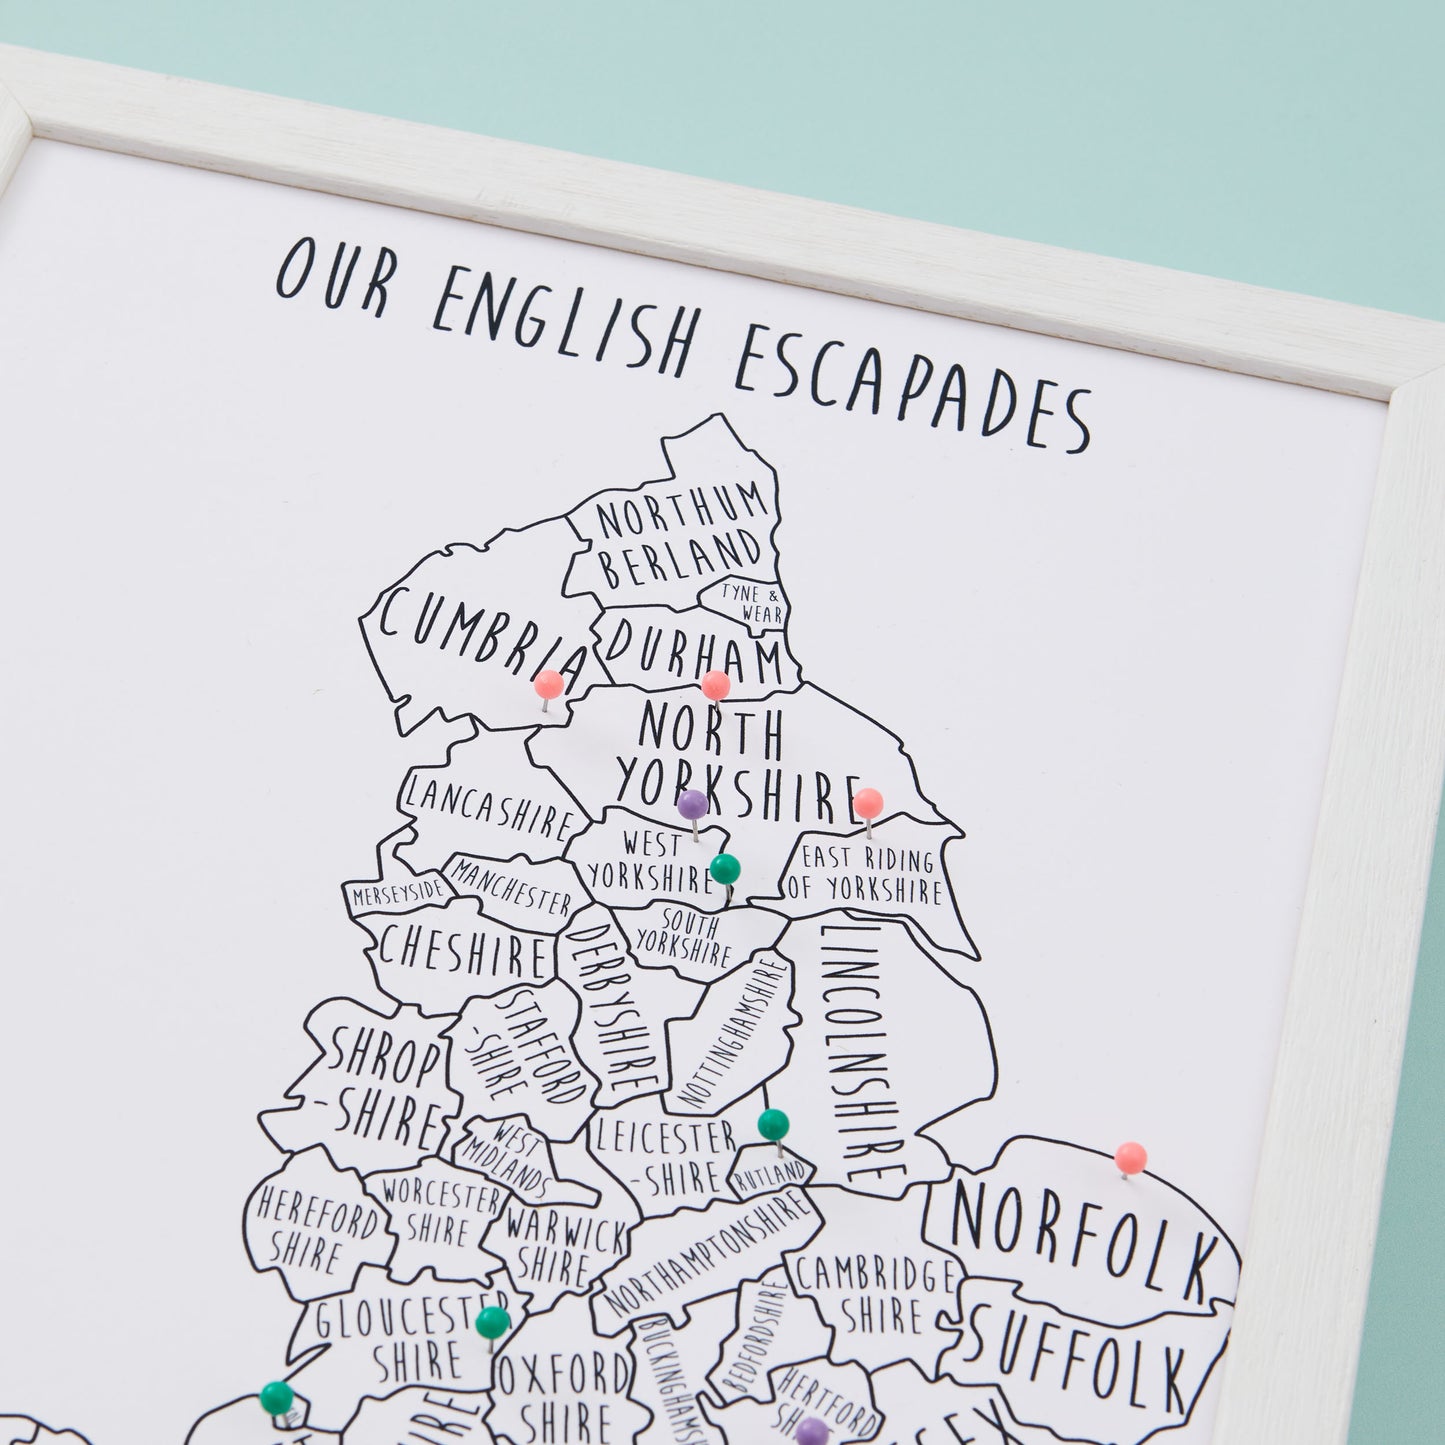 OUR ENGLISH ESCAPADES
NORTHUM
BERLAND
TYNE &
WEAR
CUMBRIA
DURHAM
NORTH
YORKSHIRE
LANCASHIRE
WEST
YORKSHIRE
EAST RIDING
OF YORKSHIRE
MERSEYSIDE
MANCHESTER
SOUTH
YORKSHIRE
CHESHIRE
DERBYSHIRE
LINCOLNSHIRE
NOTTINGHAMSHIRE
STAFFORD
-SHIRE
SHROP
-SHIRE
WEST
MIDLANDS
LEICESTER
-SHIRE
RUTLAND
NORFOLK
HEREFORD
SHIRE
WORCESTER
SHIRE
WARWICK
SHIRE
NORTHAMPTONSHIRE
CAMBRIDGE
SHIRE
SUFFOLK
GLOUCESTER
SHIRE
OXFORD
SHIRE
BEDFORDSHIRE
HERTFORD